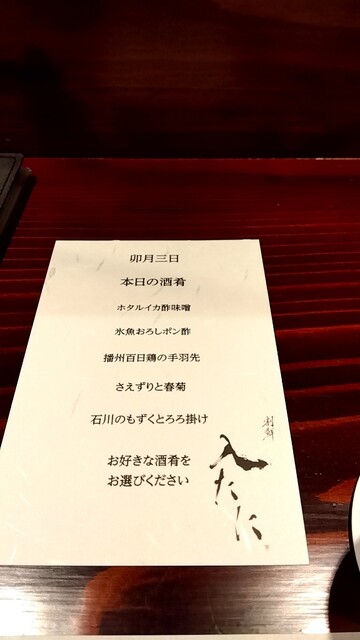 卯月三日
本日の酒肴
ホタルイカ酢味噌
氷魚おろしポン酢
播州百日鶏の手羽先
さえずりと春菊
石川のもずくとろろ掛け
お好きな酒肴を
お選びください
割鮮
入たに